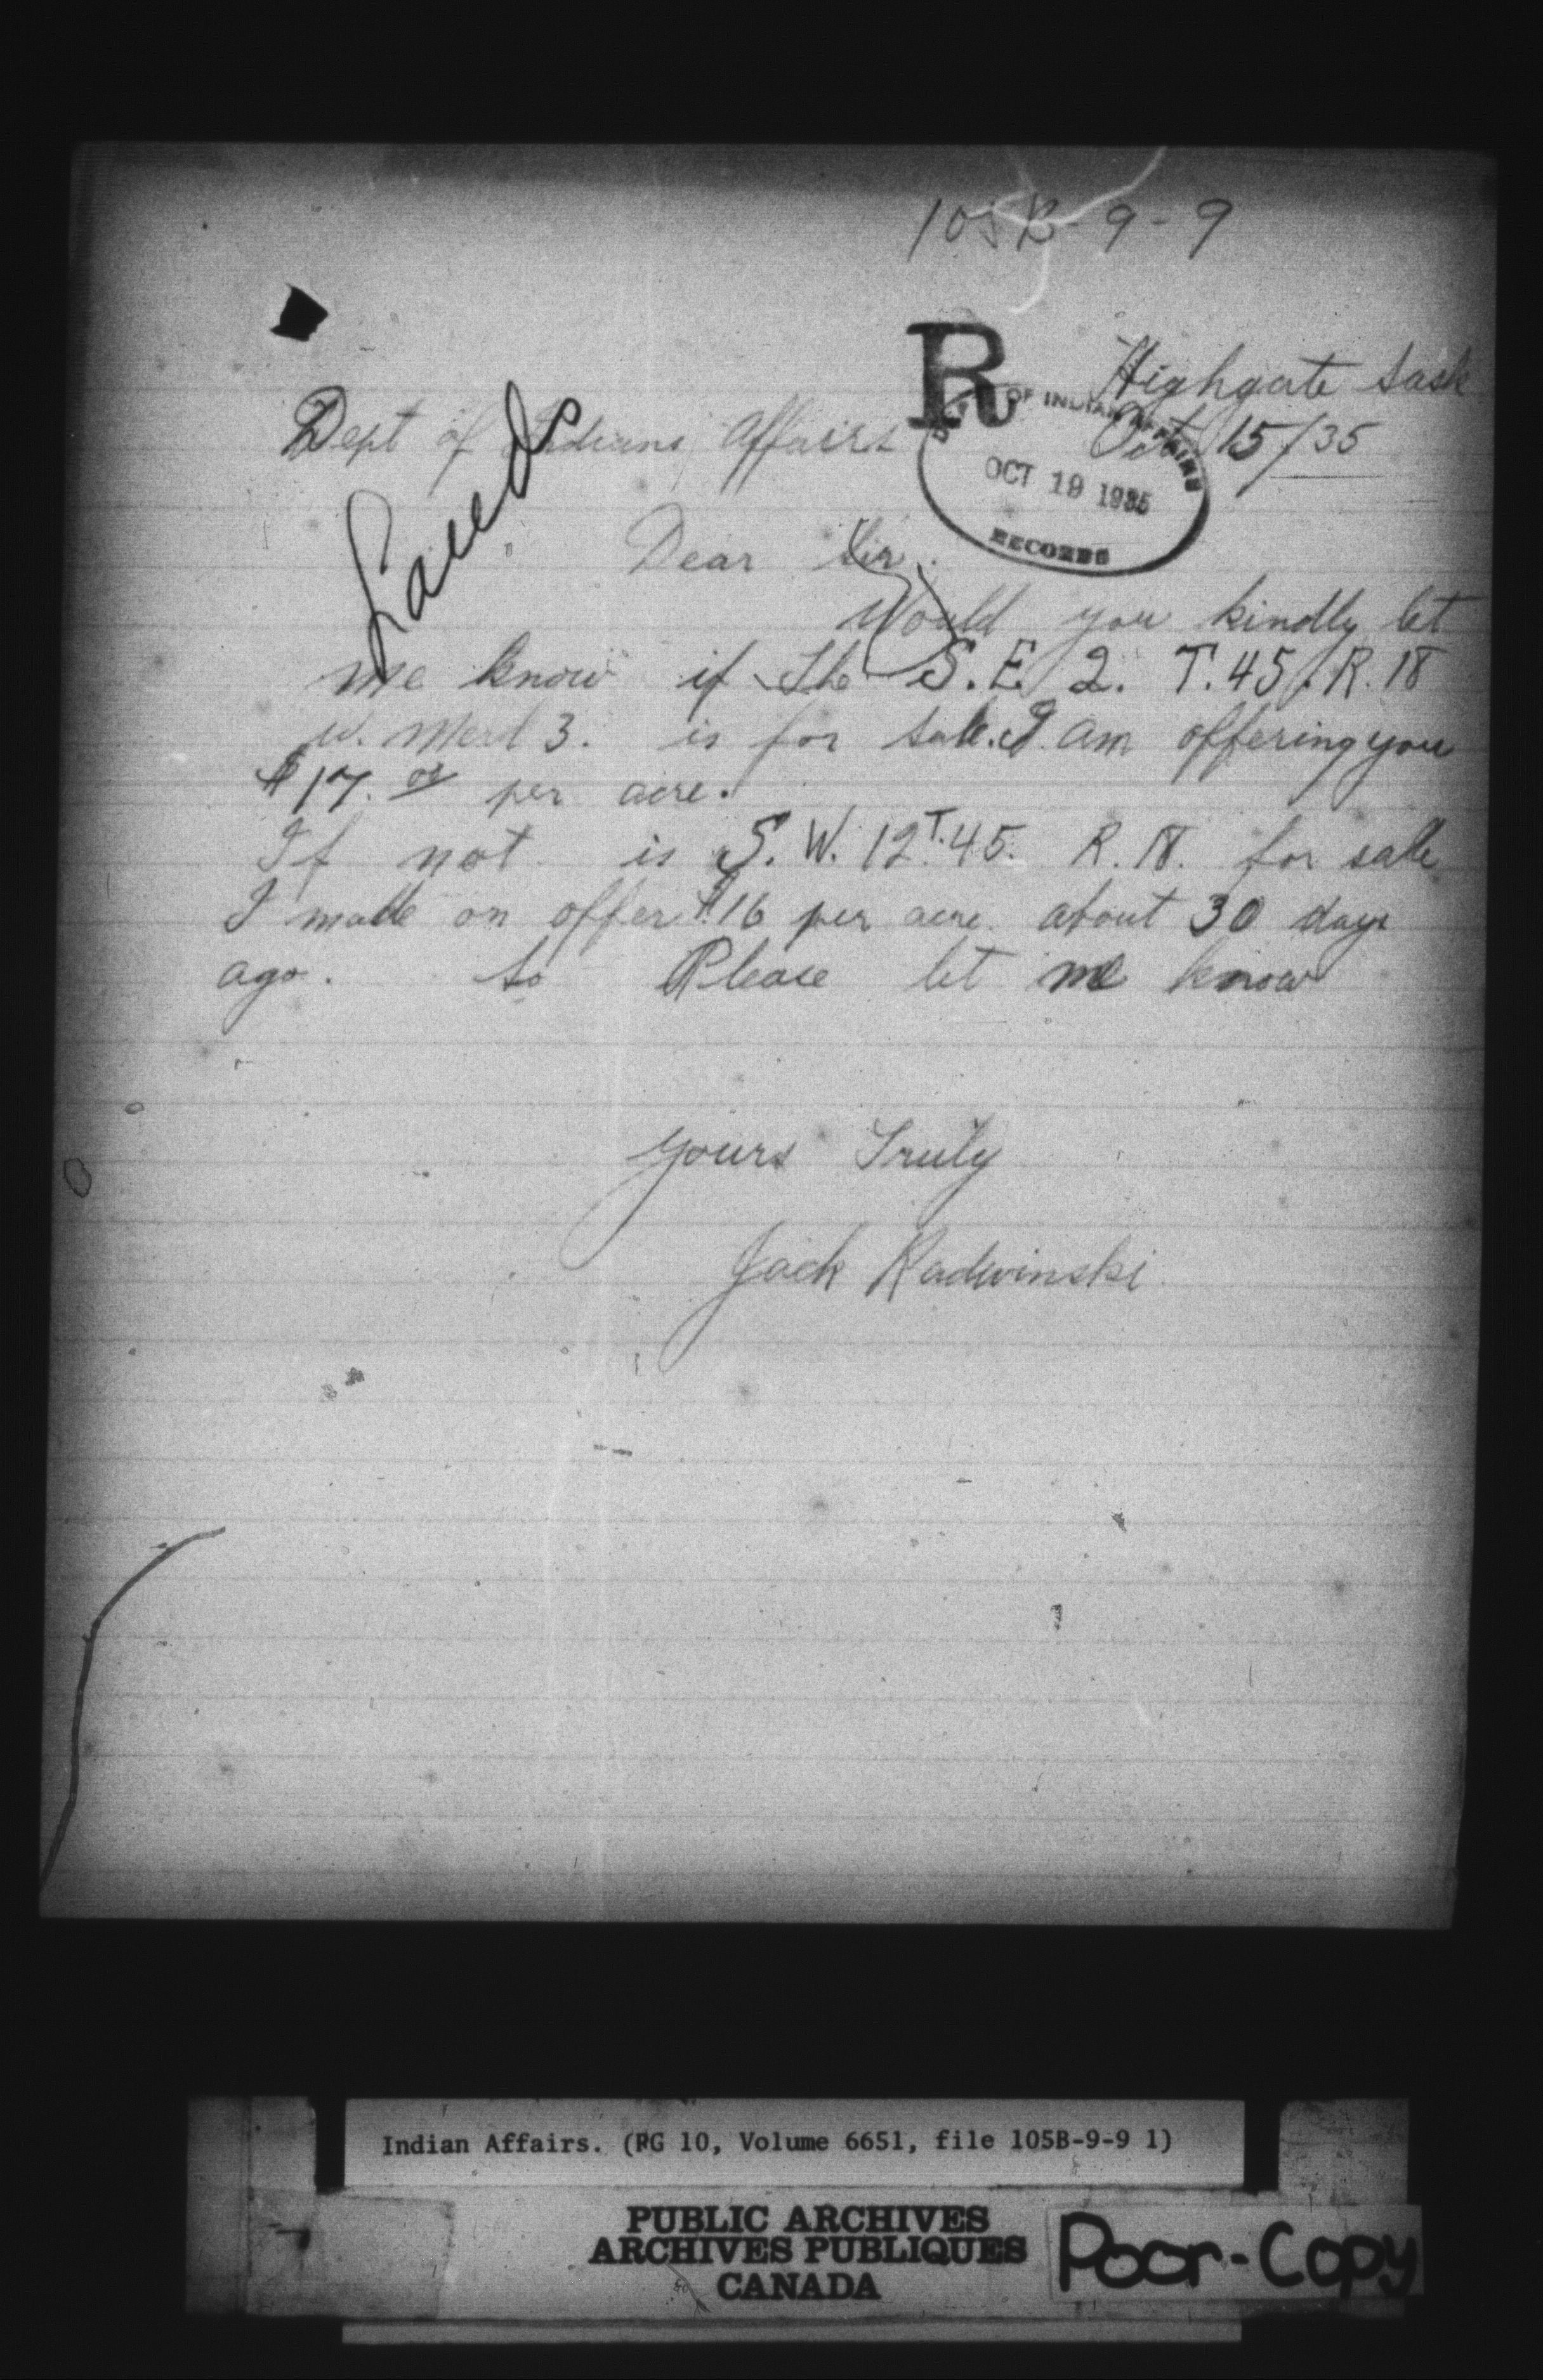 105B-9-9
R
Highgate Sask
Dept of Indians Affairs
Oct 15/35
DEPT. OF INDIAN AFFAIRS
OCT 19 1935
RECORDS
Dear Sir.
Would you kindly let
me know if the S.E. 2. T.45. R.18
W. Merd 3. is for sale. I am offering you
$17.00 per acre.
If not is S.W. 12 T.45. R.18. for sale
I made on offer $16 per acre about 30 days
ago. So Please let me know
Yours Truly
Jack Radwinski
Indian Affairs. (RG 10, Volume 6651, file 105B-9-9 1)
PUBLIC ARCHIVES
ARCHIVES PUBLIQUES
CANADA
Poor-Copy